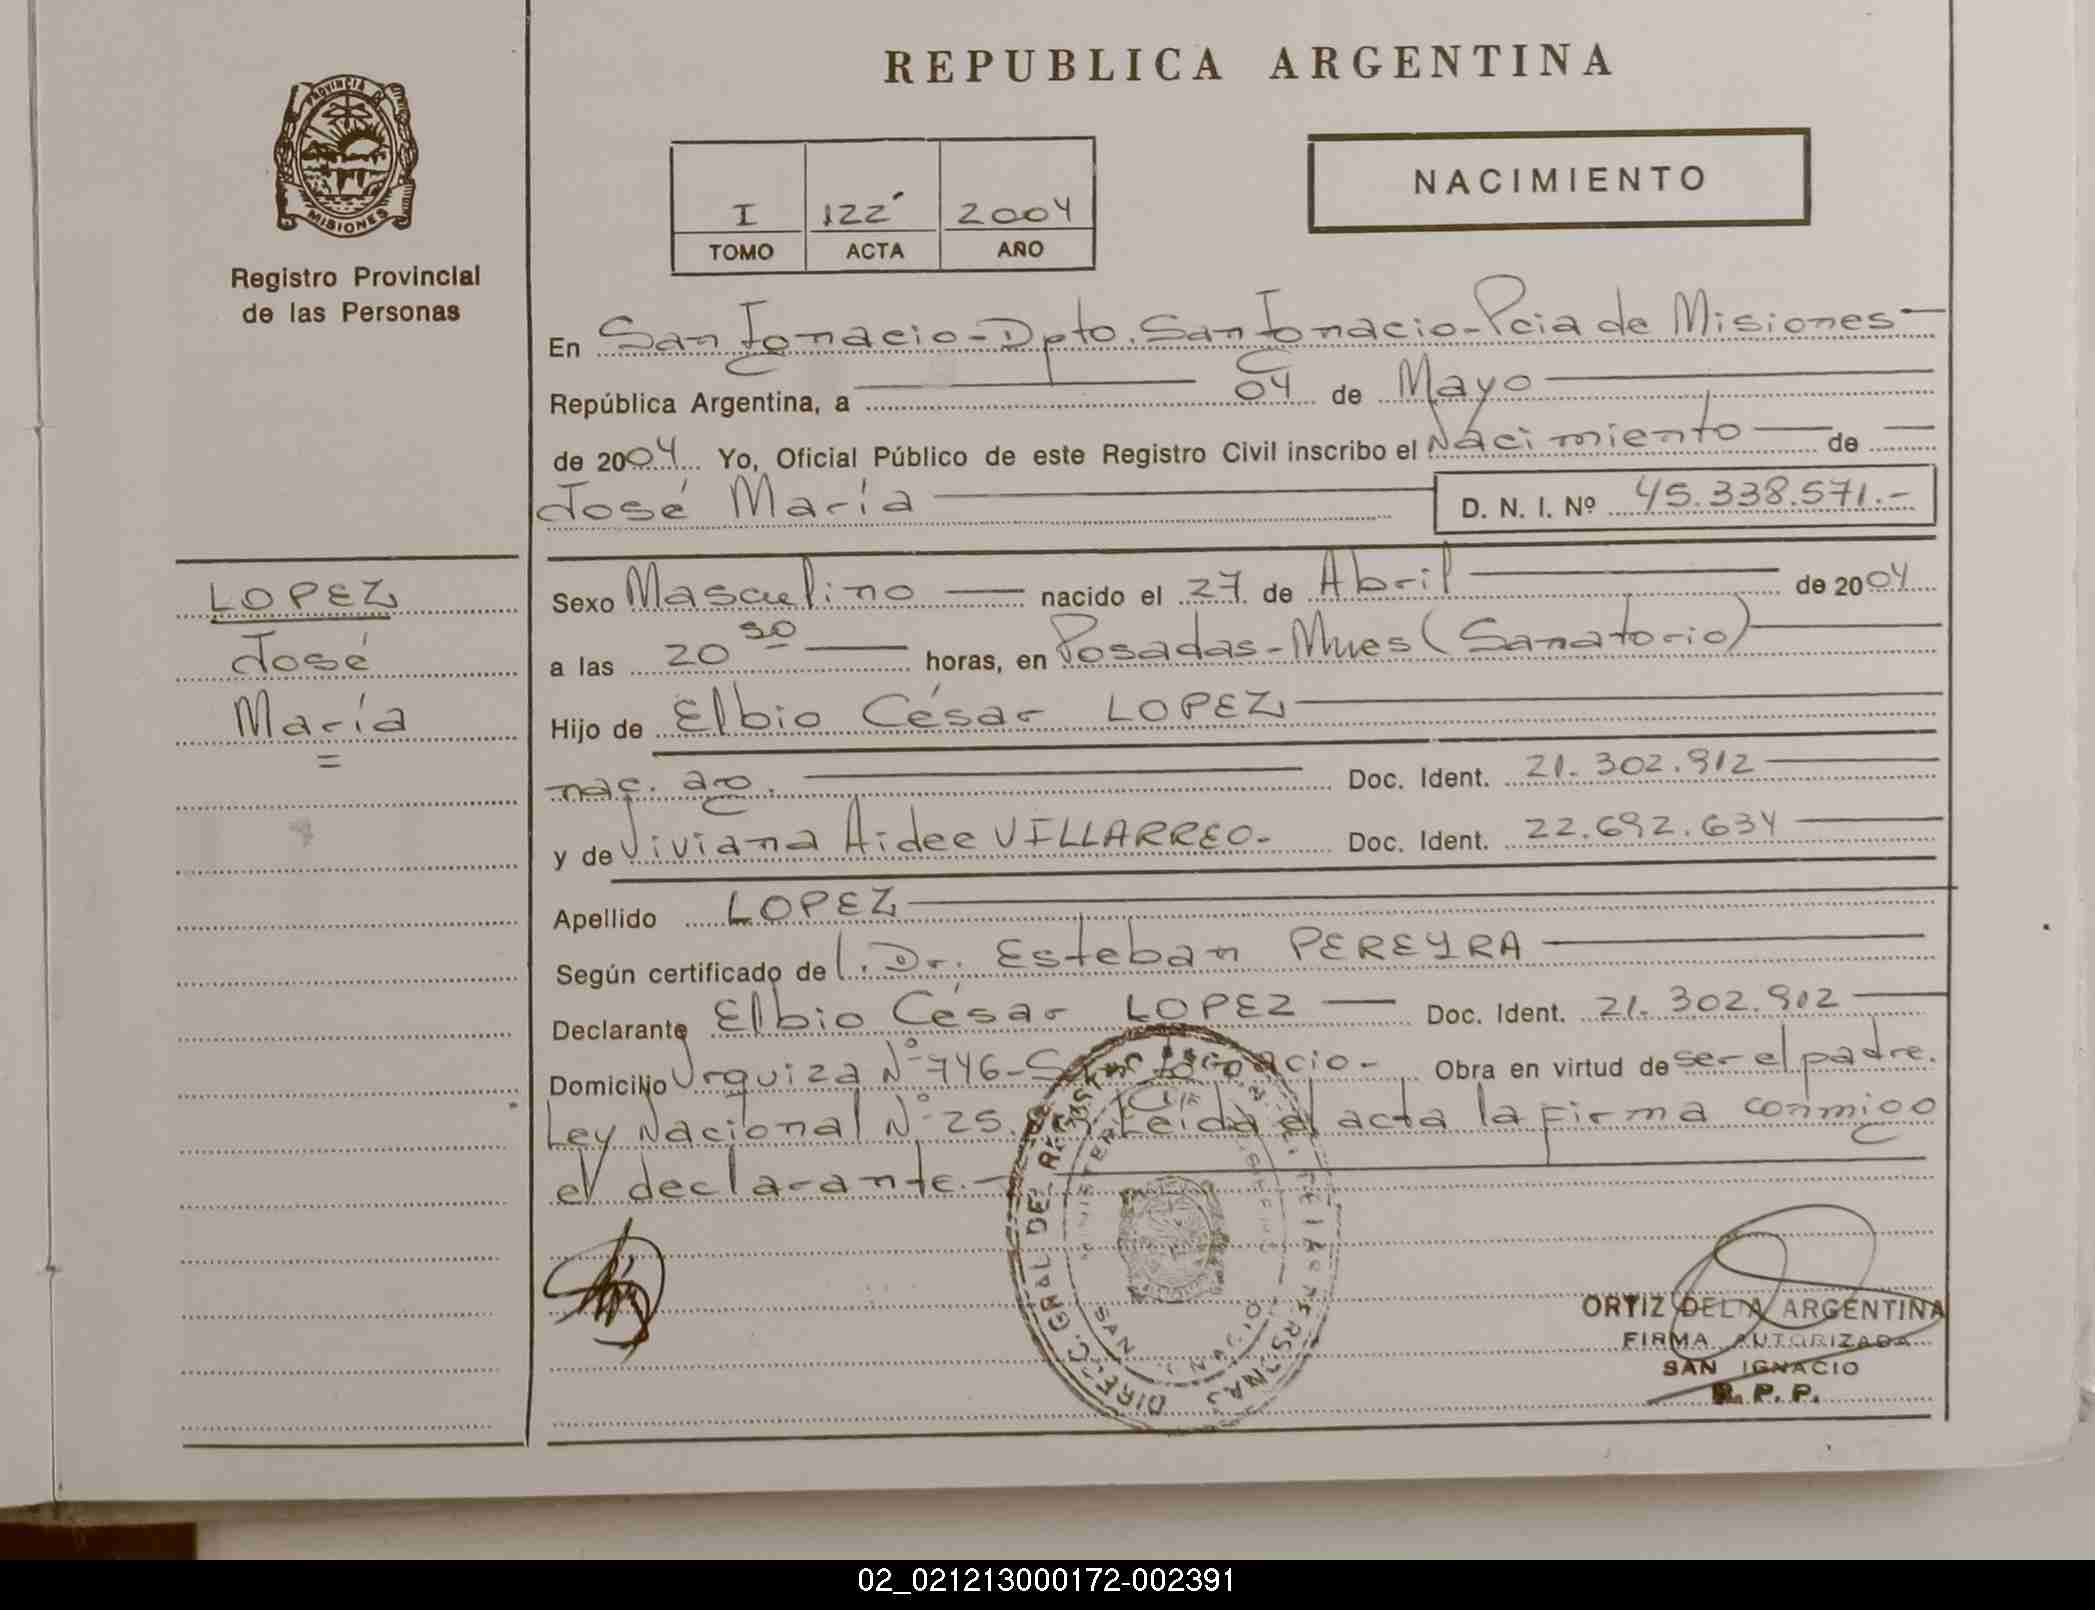 REPUBLICA ARGENTINA
PROVINCIA DE
MISIONES
Registro Provincial
de las Personas
I 122 2004
TOMO ACTA AÑO
NACIMIENTO
En San Ignacio-Dpto. San Ignacio-Pcia de Misiones
República Argentina, a 04 de Mayo
de 2004 Yo, Oficial Público de este Registro Civil inscribo el Nacimiento de
José María D. N. I. Nº 45.338.571.-
LOPEZ
José
María
=
Sexo Masculino nacido el 27 de Abril de 2004
a las 20 30 horas, en Posadas-Mnes (Sanatorio)
Hijo de Elbio César LOPEZ
nac. arg. Doc. Ident. 21.302.912
y de Viviana Aidee VILLARREO- Doc. Ident. 22.692.634
Apellido LOPEZ
Según certificado del Dr. Esteban PEREYRA
Declarante Elbio César LOPEZ Doc. Ident. 21.302.912
Domicilio Urquiza Nº 746-San Ignacio- Obra en virtud de ser el padre.
Ley Nacional Nº 25. Leida el acta la firma conmigo
el declarante.-
DIREC. GRAL DEL REGISTRO
SAN IGNACIO
ORTIZ DELIA ARGENTINA
FIRMA AUTORIZADA
SAN IGNACIO
R. P. P.
02_021213000172-002391